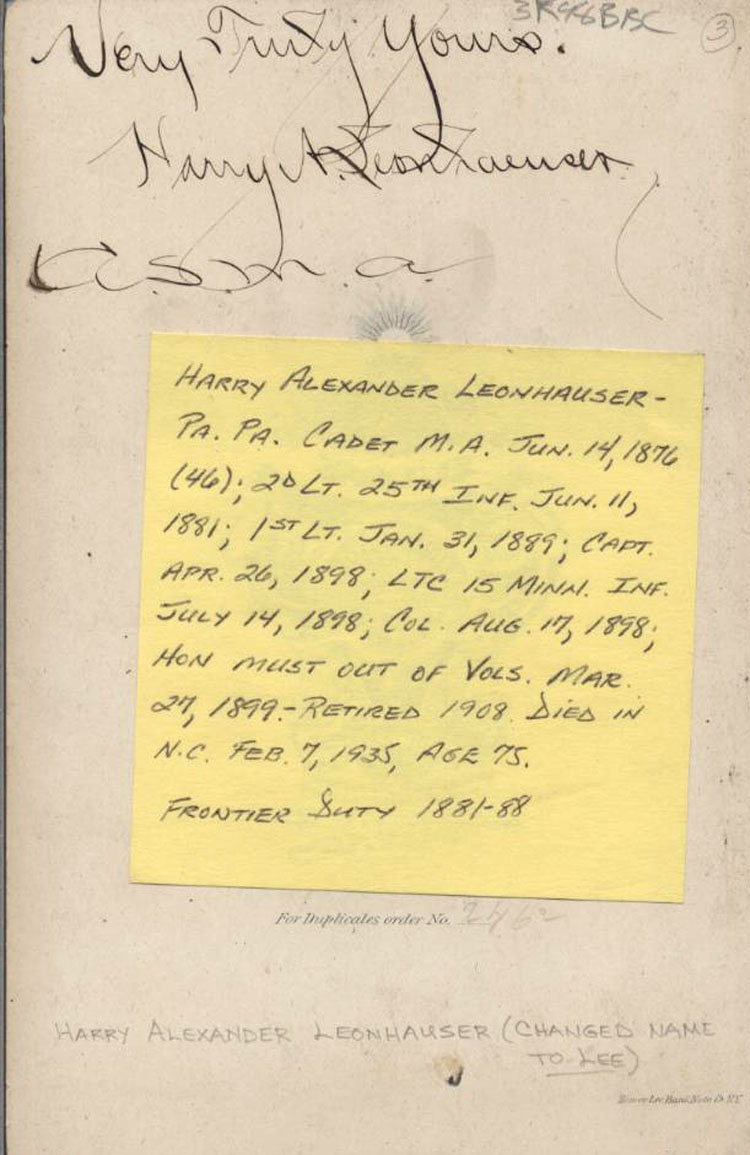 3R46BBC
3
Very Truly Yours.
Harry A. Leonhaeuser.
U.S.M.A.
HARRY ALEXANDER LEONHAUSER -
PA. PA. CADET M.A. JUN. 14, 1876
(46); 2D LT. 25TH INF. JUN. 11,
1881; 1ST LT. JAN. 31, 1889; CAPT.
APR. 26, 1898; LTC 15 MINN. INF.
JULY 14, 1898; COL. AUG. 17, 1898;
HON MUST OUT OF VOLS. MAR.
27, 1899.-RETIRED 1908. DIED IN
N.C. FEB. 7, 1935, AGE 75.
FRONTIER DUTY 1881-88
For Duplicates order No. 2462
HARRY ALEXANDER LEONHAUSER (CHANGED NAME
TO LEE)
Bank Note Co. N.Y.